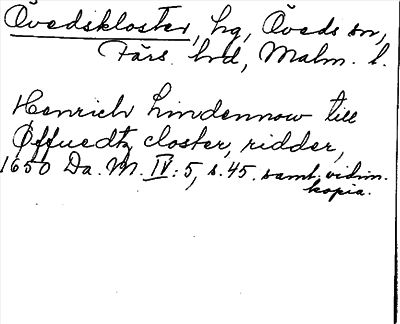 Övedskloster, hg, Öveds sn,
Färs hrd, Malm. l.
Henrich Lindennow till
Øffuedtz closter, ridder,
1650 Da. M. IV: 5, s. 45. samt. vidim.
kopia.